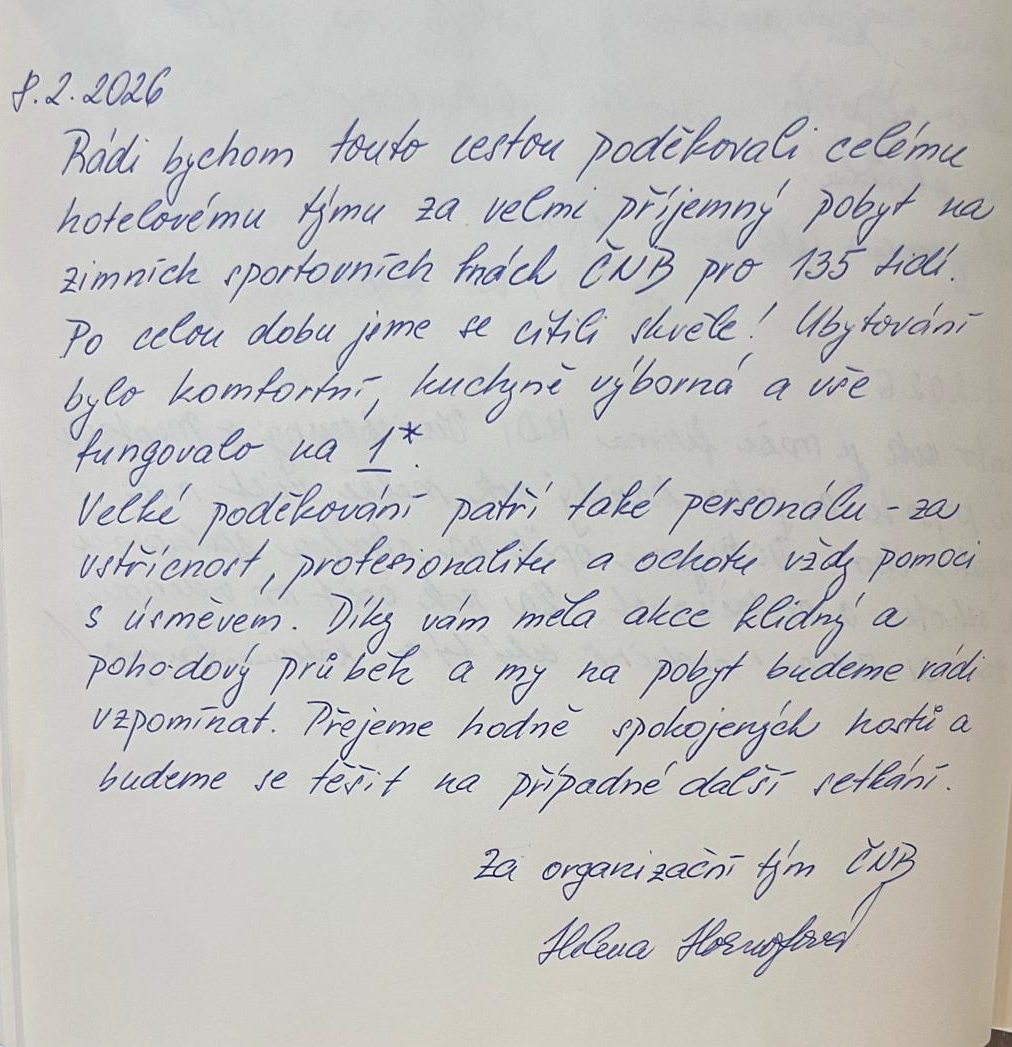 8.2.2026
Rádi bychom touto cestou poděkovali celému
hotelovému týmu za velmi příjemný pobyt na
zimních sportovních hrách ČNB pro 135 lidí.
Po celou dobu jsme se cítili skvěle! Ubytování
bylo komfortní, kuchyně výborná a vše
fungovalo na 1*.
Velké poděkování patří také personálu - za
vstřícnost, profesionalitu a ochotu vždy pomoci
s úsměvem. Díky vám měla akce klidný a
pohodový průběh a my na pobyt budeme rádi
vzpomínat. Přejeme hodně spokojených hostů a
budeme se těšit na případné další setkání.
Za organizační tým ČNB
Helena